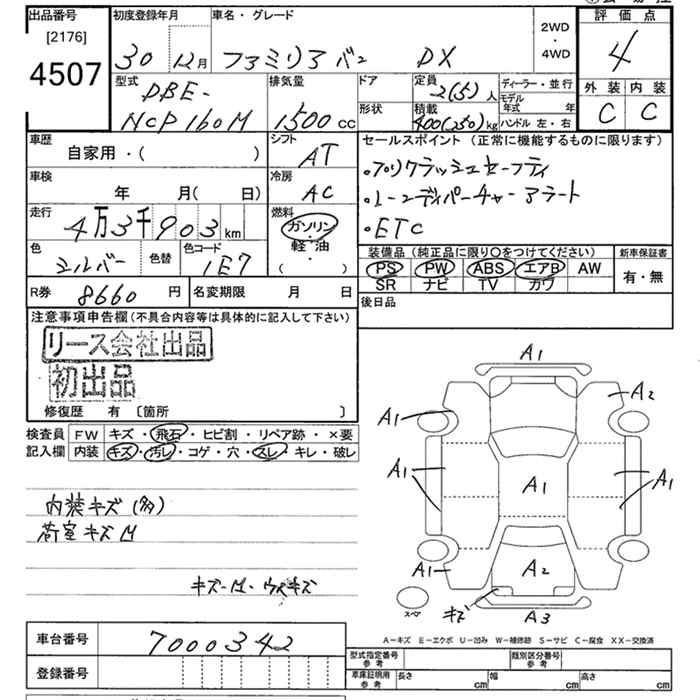 出品番号
[2176]
4507
初度登録年月
30年12月
車名・グレード
ファミリアバン DX
2WD
・
4WD
評価点
4
外装 内装
C C
型式
DBE-
NCP160M
排気量
1500cc
ドア
形状
定員
2(5)人
積載
400(250)kg
ディーラー・並行
モデル年式 年
ハンドル 左・右
車歴
自家用・( )
シフト
AT
車検
年 月( 日)
冷房
AC
走行
4万3千903km
燃料
ガソリン
・
軽・油
( )
色
シルバー
色替
色コード
1E7
セールスポイント (正常に機能するものに限ります)
・プリクラッシュセーフティ
・レーンディパーチャーアラート
・ETC
装備品(純正品に限り〇をつけてください)
PS PW ABS エアB AW
SR ナビ TV カワ
新車保証書
有・無
R券 8660円
名変期限 月 日
後日品
注意事項申告欄(不具合内容等は具体的に記入して下さい)
リース会社出品
初出品
修復歴 有 〔箇所 〕
検査員
記入欄
FW キズ・飛石・ヒビ割・リペア跡・×要
内装 キズ・汚レ・コゲ・穴・スレ・キレ・破レ
内装キズ(多)
荷室キズM
A1
A2
A1
A1
A1
A1
A1
A2
キズ
A3
スペア
A-キズ E-エクボ U-凹み W-補修跡 S-サビ C-腐食 XX-交換済
車台番号
7000342
登録番号
型式指定番号
参考
類別区分番号
参考
車庫証明用
参考
長さ cm
幅 cm
高さ cm